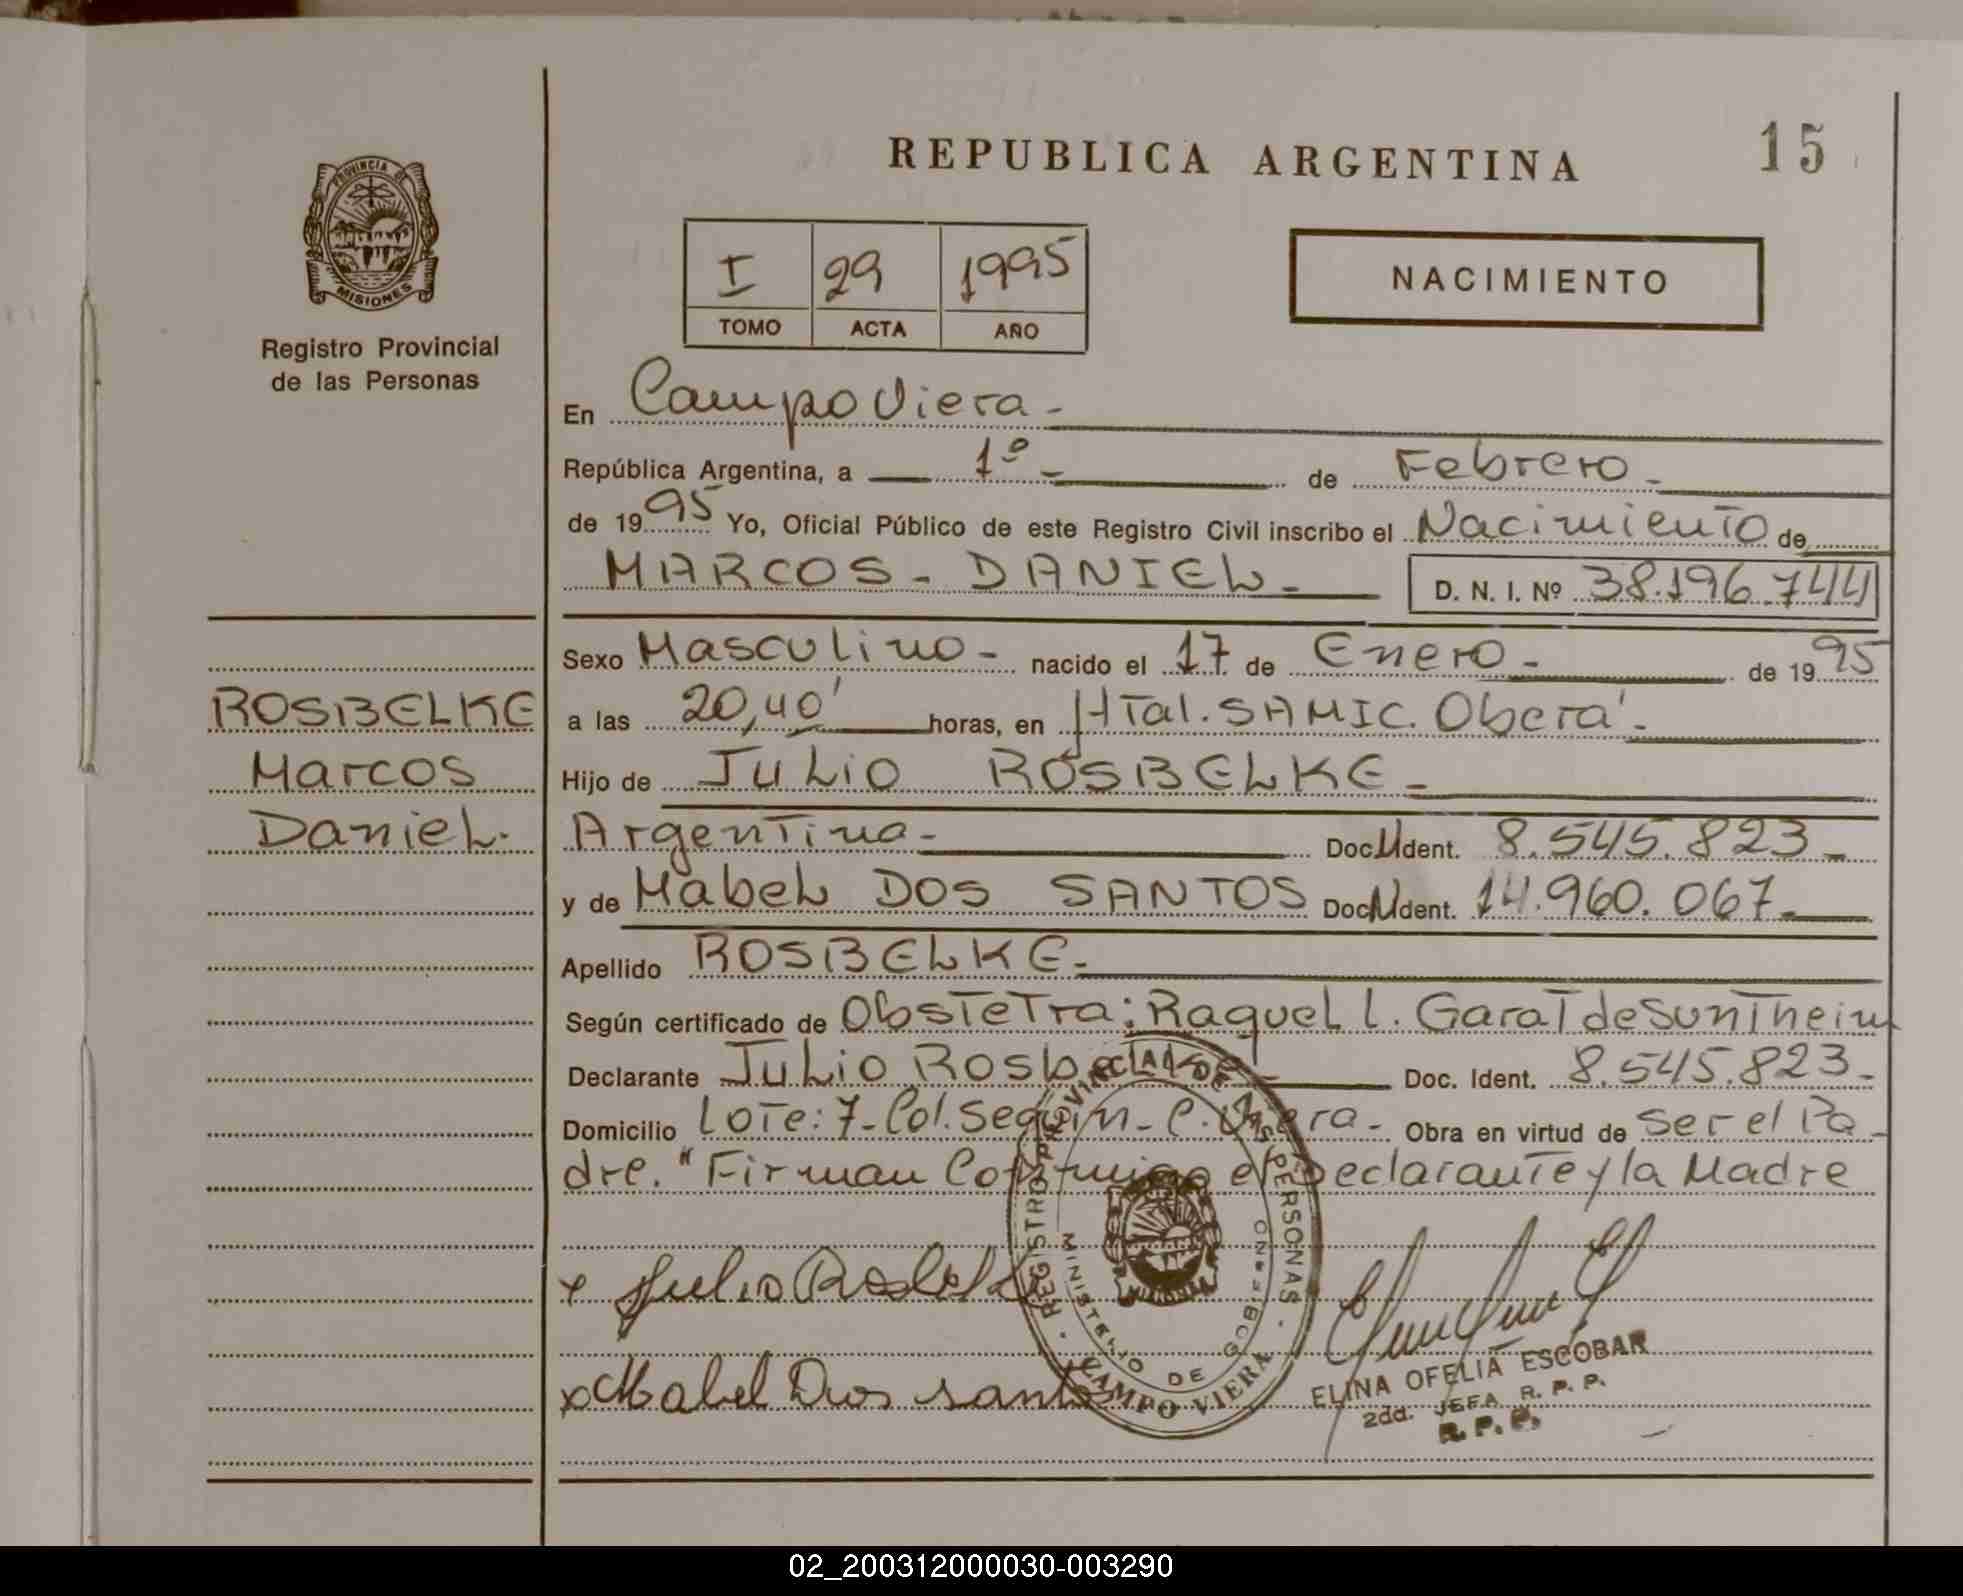 REPUBLICA ARGENTINA
15
PROVINCIA DE
MISIONES
Registro Provincial
de las Personas
I 29 1995
TOMO ACTA AÑO
NACIMIENTO
En Campo Viera -
República Argentina, a 1º - de Febrero -
de 1995 Yo, Oficial Público de este Registro Civil inscribo el Nacimiento de
MARCOS - DANIEL - D. N. I. Nº 38.196.744
Sexo Masculino - nacido el 17 de Enero - de 1995
a las 20,40' horas, en Htal. SAMIC. Oberá -
Hijo de Julio ROSBELKE -
Argentina - Doc. Ident. 8.545.823 -
y de Mabel DOS SANTOS Doc. Ident. 14.960.067 -
Apellido ROSBELKE -
Según certificado de Obstetra: Raquel l. Garat de Suntheim
Declarante Julio Rosbelke - Doc. Ident. 8.545.823 -
Domicilio Lote: 7 - Col. Seguin - C. Viera - Obra en virtud de ser el Pa-
dre. "Firman Conmigo el Declarante y la Madre
ROSBELKE
Marcos
Daniel.
x Julio Rosbelk
x Mabel Dos santos
REGISTRO PROVINCIAL DE LAS PERSONAS
MINISTERIO DE GOBIERNO
CAMPO VIERA
ELINA OFELIA ESCOBAR
2da. JEFA R. P. P.
R. P. P.
02_200312000030-003290